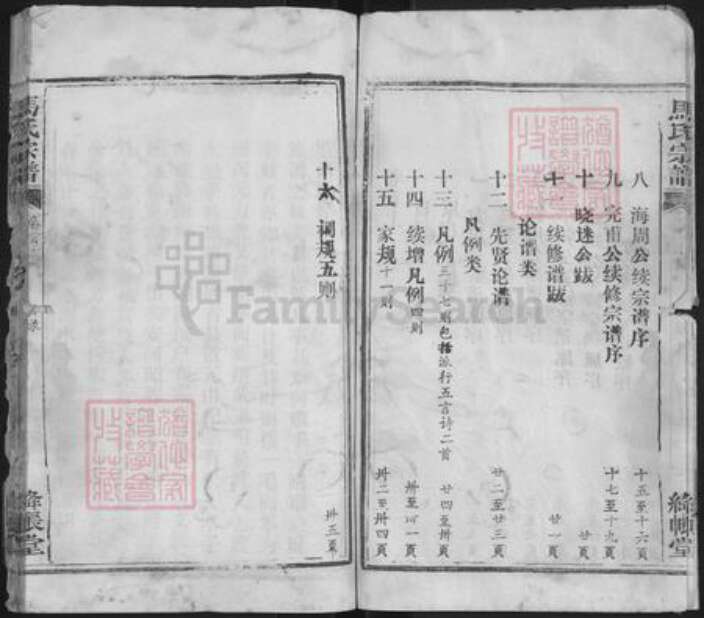 馬氏宗譜
八 海周公续宗谱序 十五至十六頁
九 完甫公续修宗谱序 十七至十九頁
十 晓迷公跋 廿頁
十一 续修谱跋 廿一頁
论谱类
十二 先贤论谱 廿二至廿三頁
凡例类
十三 凡例 三十七则包括派行五言诗二首 廿四至卅頁
十四 续增凡例 四则 卅至卌一頁
十五 家规 十一则 卅二至卅四頁
絳帳堂
十六 祠规五则 卅三頁
馬氏宗譜
絳帳堂
特藏
FamilySearch